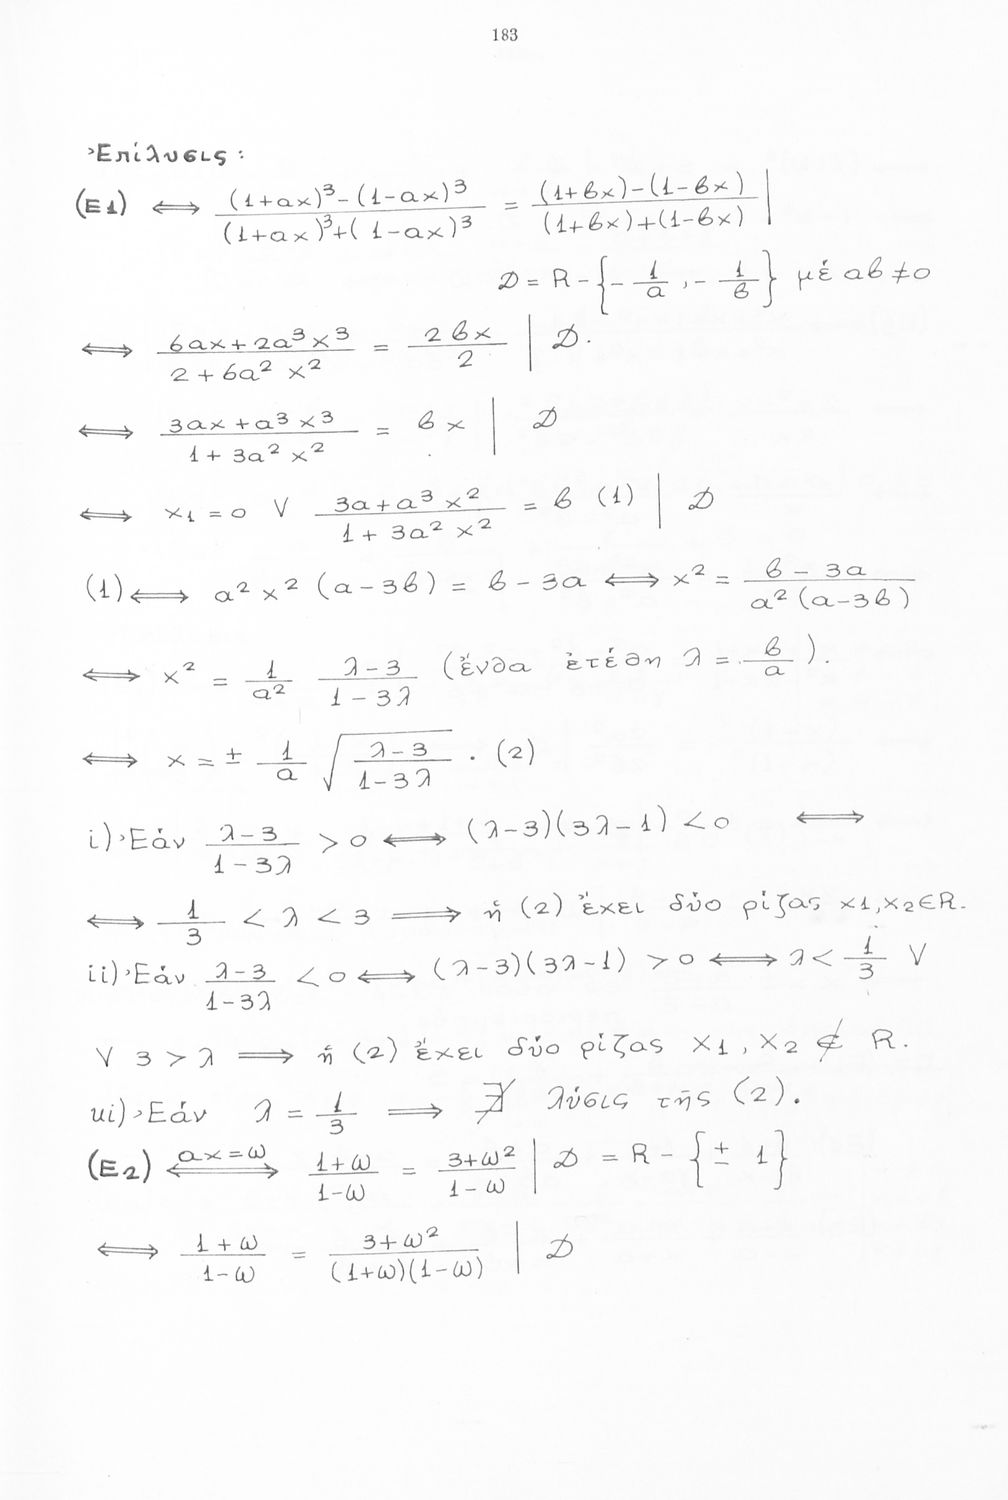 183
Ἐπίλυσις:
(E1) ⟺ ((1+ax)³-(1-ax)³)/((1+ax)³+(1-ax)³) = ((1+βx)-(1-βx))/((1+βx)+(1-βx)) |
D = R - {-1/a, -1/β} μέ aβ≠0
⟺ (6ax+2a³x³)/(2+6a²x²) = 2βx/2 | D.
⟺ (3ax+a³x³)/(1+3a²x²) = βx | D
⟺ x1=0 V (3a+a³x²)/(1+3a²x²) = β (1) | D
(1)⟺ a²x²(a-3β) = β-3a ⟺ x² = (β-3a)/(a²(a-3β))
⟺ x² = 1/a² (λ-3)/(1-3λ) (ἔνθα ἐτέθη λ = β/a).
⟺ x = ± 1/a √((λ-3)/(1-3λ)) . (2)
i) Ἐάν (λ-3)/(1-3λ) >0 ⟺ (λ-3)(3λ-1) <0 ⟺
⟺ 1/3 < λ < 3 ⟹ ἡ (2) ἔχει δύο ρίζας x1,x2∈R.
ii) Ἐάν (λ-3)/(1-3λ) <0 ⟺ (λ-3)(3λ-1) >0 ⟺ λ< 1/3 V
V 3 > λ ⟹ ἡ (2) ἔχει δύο ρίζας x1, x2 ∉ R.
iii) Ἐάν λ = 1/3 ⟹ ∄ λύσις τῆς (2).
(E2) ⟺ ax=ω (1+ω)/(1-ω) = (3+ω²)/(1-ω) | D = R - {± 1}
⟺ (1+ω)/(1-ω) = (3+ω²)/((1+ω)(1-ω)) | D